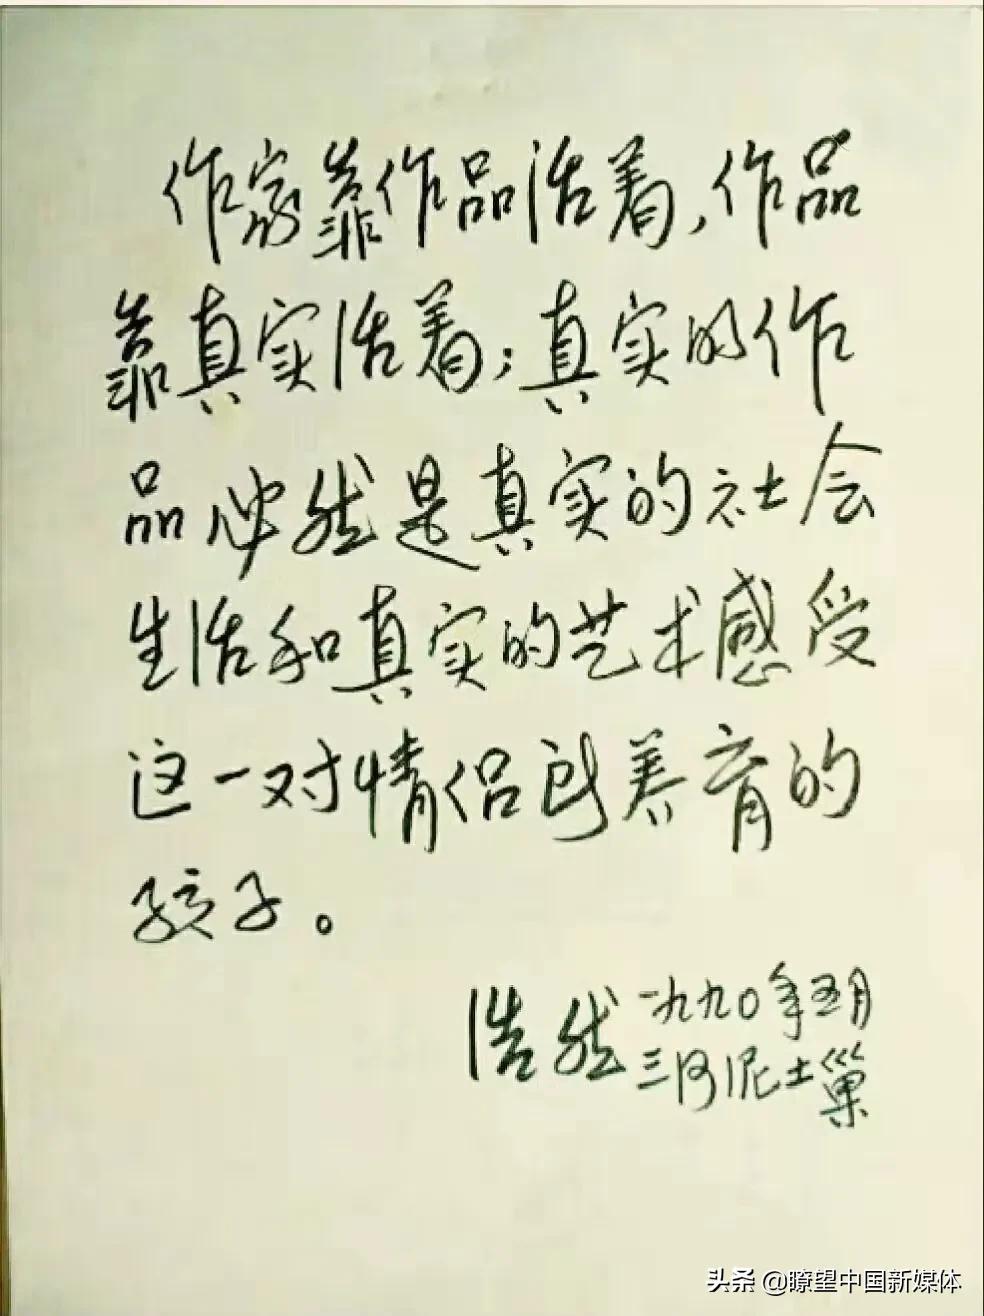 作家靠作品活着,作品
靠真实活着;真实的作
品必然是真实的社会
生活和真实的艺术感受
这一对情侣所养育的
孩子。
浩然
一九九〇年五月
三河泥土巢
头条 @瞭望中国新媒体